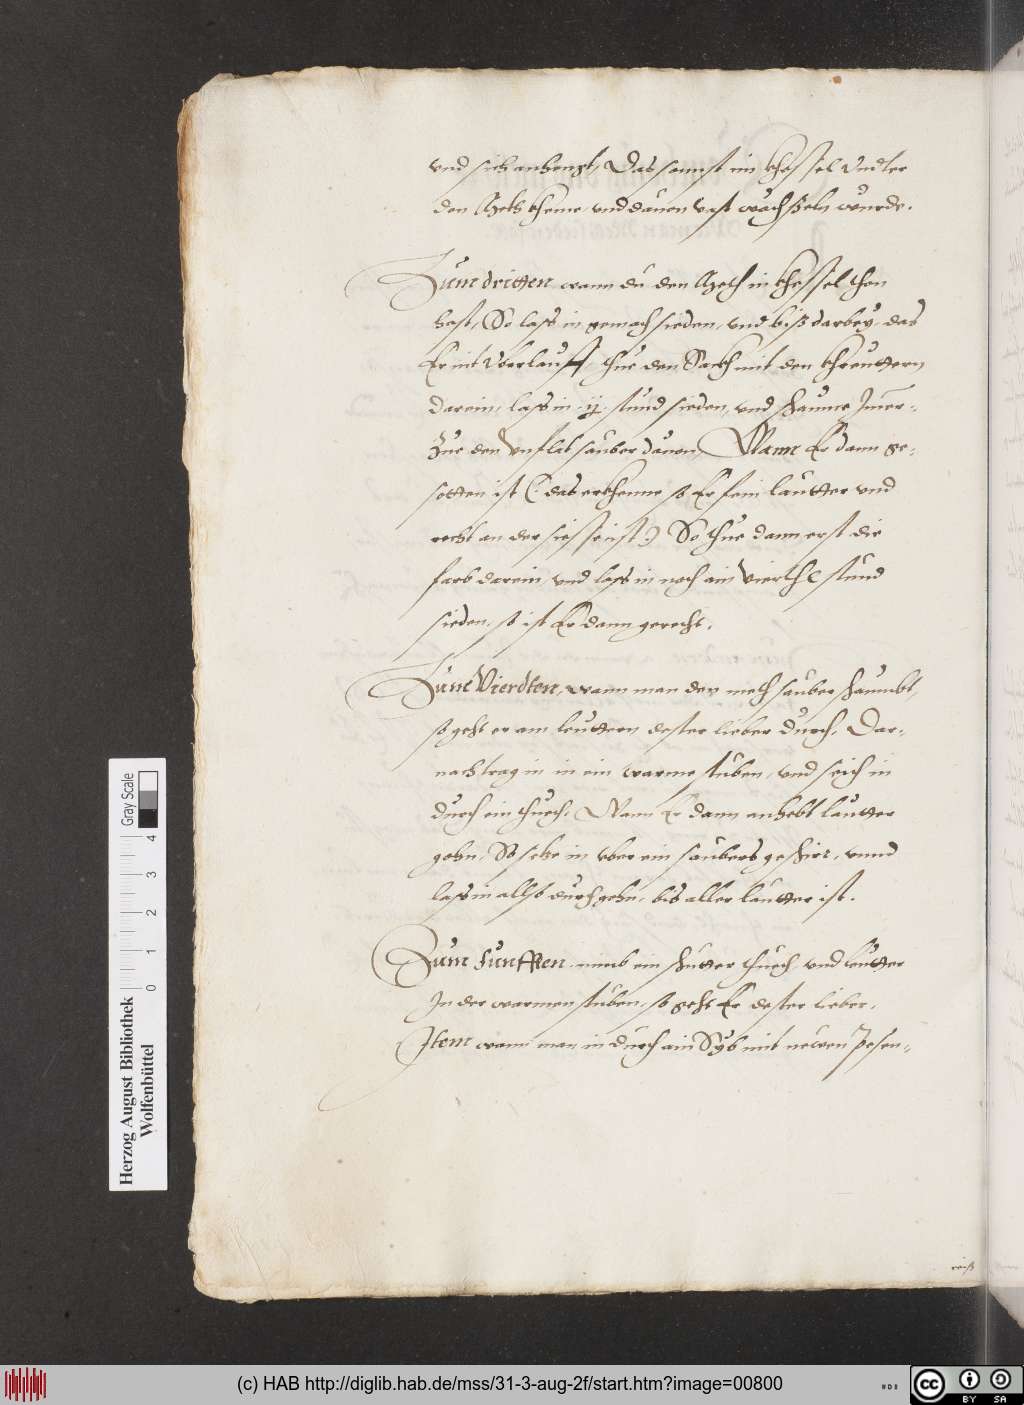 vnd sich anhengt, Das sonnst im khessel vndter
den Meth kheme, vnd dauon vast wachßeln wurde.
Zum dritten wann du den Meth in khessel thon
hast, So lass in gemach sieden, vnd biß darbey, das
Er nit Vberlauff, thue den Sackh mit den khreuttern
darein, lass in ij stund sieden, vnd schaume Imer-
Zue den Vnflat sauber dauon, Wann Er dann ge-
sotten ist (: das erkhenne so Er fein lautter vnd
recht an der siesse ist :) So thue dann erst die
farb darein, vnd lass in noch ain Vierthl stund
sieden, so ist Er dann gerecht.
Zum Vierdten, wann man den meth sauber schaumbt,
so geht er am leuttern dester lieber durch, Dar-
nach trag in in ein warme stuben, vnd seich in
durch ein thuech, Wann Er dann anhebt lautter
gehn, So setze in vber ein saubers geschirr, vnnd
lass in allso durchgehn, bis aller lautter ist.
Zum Funfften nimb ein schutter thuech vnd leutter
In der warmen stuben, so geht Er dester lieber.
Item wann man in durch ain Syb mit newen pesen-
reiß
Herzog August Bibliothek
Wolfenbüttel
0 1 2 3 4
Gray Scale
(c) HAB http://diglib.hab.de/mss/31-3-aug-2f/start.htm?image=00800
cc BY SA